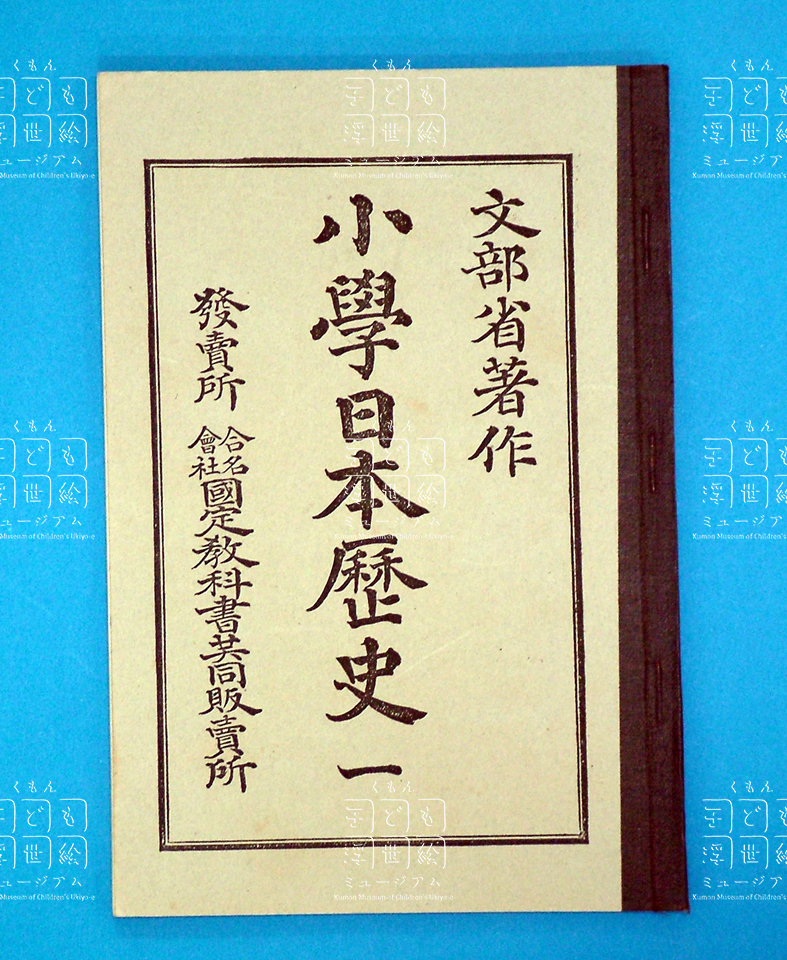 文部省著作
小學日本歷史 一
發賣所 合名會社 國定敎科書共同販賣所
くもん
子ども
浮世絵
ミュージアム
Kumon Museum of Children's Ukiyo-e